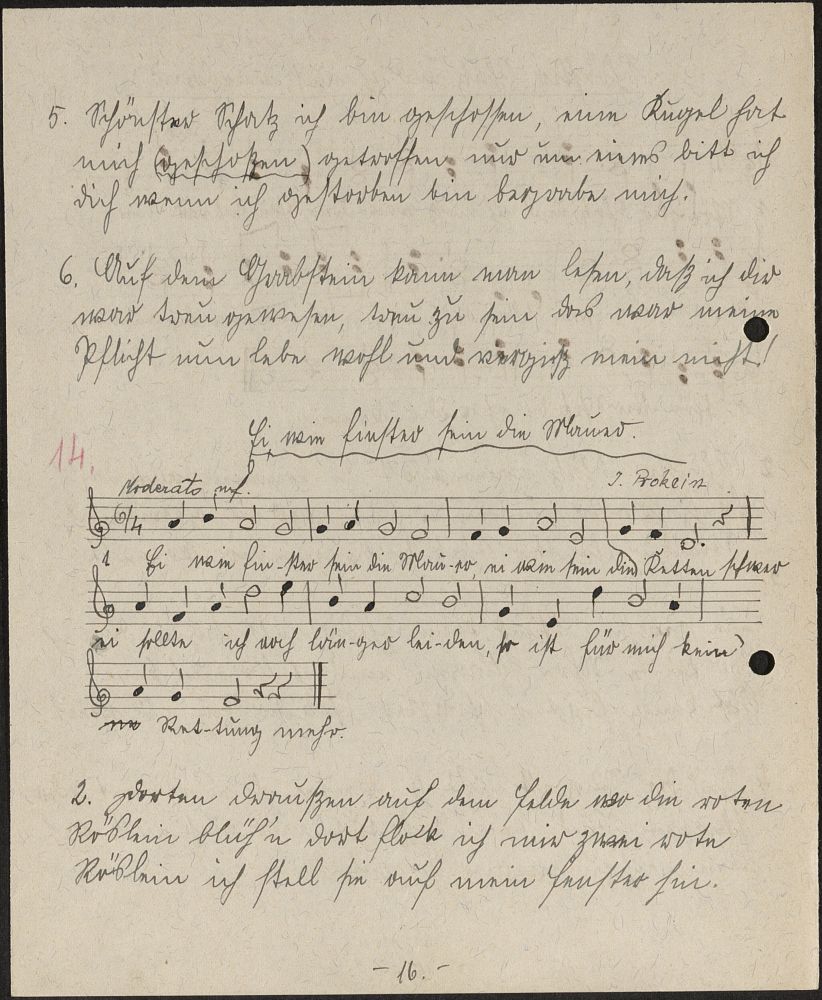 5. Schönster Schatz ich bin geschossen, eine Kugel hat
mich (geschoßen) getroffen nur um eines bitt ich
dich wenn ich gestorben bin begrabe mich.
6. Auf dem Grabstein kann man lesen, daß ich dir
war treu gewesen, treu zu sein das war meine
Pflicht nun lebe wohl und vergiß mein nicht!
Ei wie finster sein die Mauer.
14.
Moderato mf. J. Prokein
6/4
1 Ei wie fin-ster sein die Mau-er, ei wie sein die Ketten schwer
ei sollte ich noch län-ger lei-den, so ist für mich kein
ne Ret-tung mehr.
2. Dorten draußen auf dem Felde wo die roten
Röslein blüh'n dort flock ich mir zwei rote
Röslein ich stell sie auf mein Fenster hin.
- 16. -